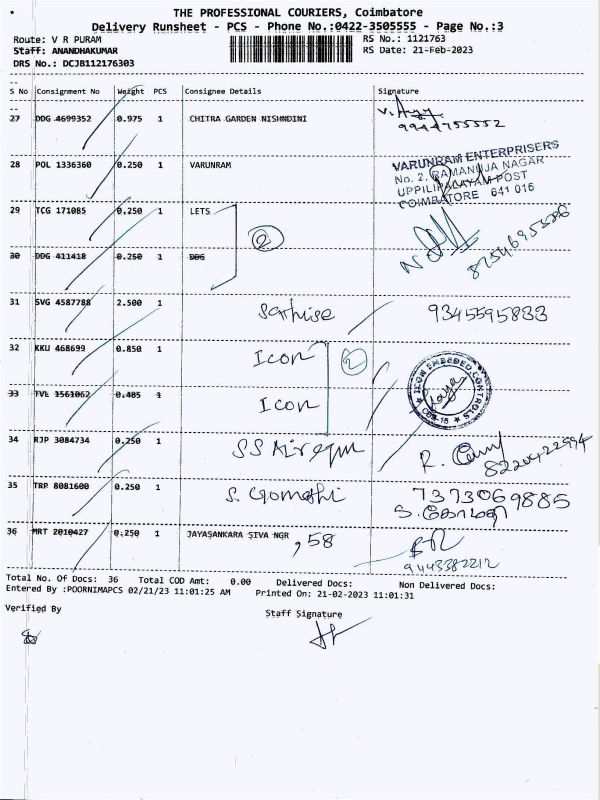 THE PROFESSIONAL COURIERS, Coimbatore
Delivery Runsheet - PCS - Phone No.:0422-3505555 - Page No.:3
Route: V R PURAM RS No.: 1121763
Staff: ANANDHAKUMAR RS Date: 21-Feb-2023
DRS No.: DCJB112176303
S No Consignment No Weight PCS Consignee Details Signature
27 DDG 4699352 0.975 1 CHITRA GARDEN NISHNDINI
9944755552
28 POL 1336360 0.250 1 VARUNRAM
VARUNRAM ENTERPRISERS
No. 2, RAMANUJA NAGAR
UPPILIPALAYAM POST
COIMBATORE 641 015
29 TCG 171085 0.250 1 LETS
2
30 DDG 411418 0.250 1 DDG
31 SVG 4587788 2.500 1 Sathise 9345595833
32 KKU 468699 0.850 1 Icon 2
ICON EMBEDED CONTROLS
33 TVL 1561062 0.485 1 Icon
34 RJP 3084734 0.250 1
8220422994
35 TRP 8081600 0.250 1 S. Gomathi 7373069885
S. கோமதி
36 MRT 2010427 0.250 1 JAYASANKARA SIVA NGR , 58
9443382212
Total No. Of Docs: 36 Total COD Amt: 0.00 Delivered Docs: Non Delivered Docs:
Entered By :POORNIMAPCS 02/21/23 11:01:25 AM Printed On: 21-02-2023 11:01:31
Verified By Staff Signature